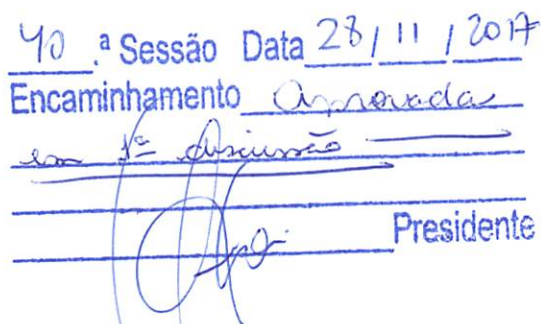 40 .ª Sessão Data 28 / 11 / 2017
Encaminhamento aprovada
em 1ª discussão
Presidente